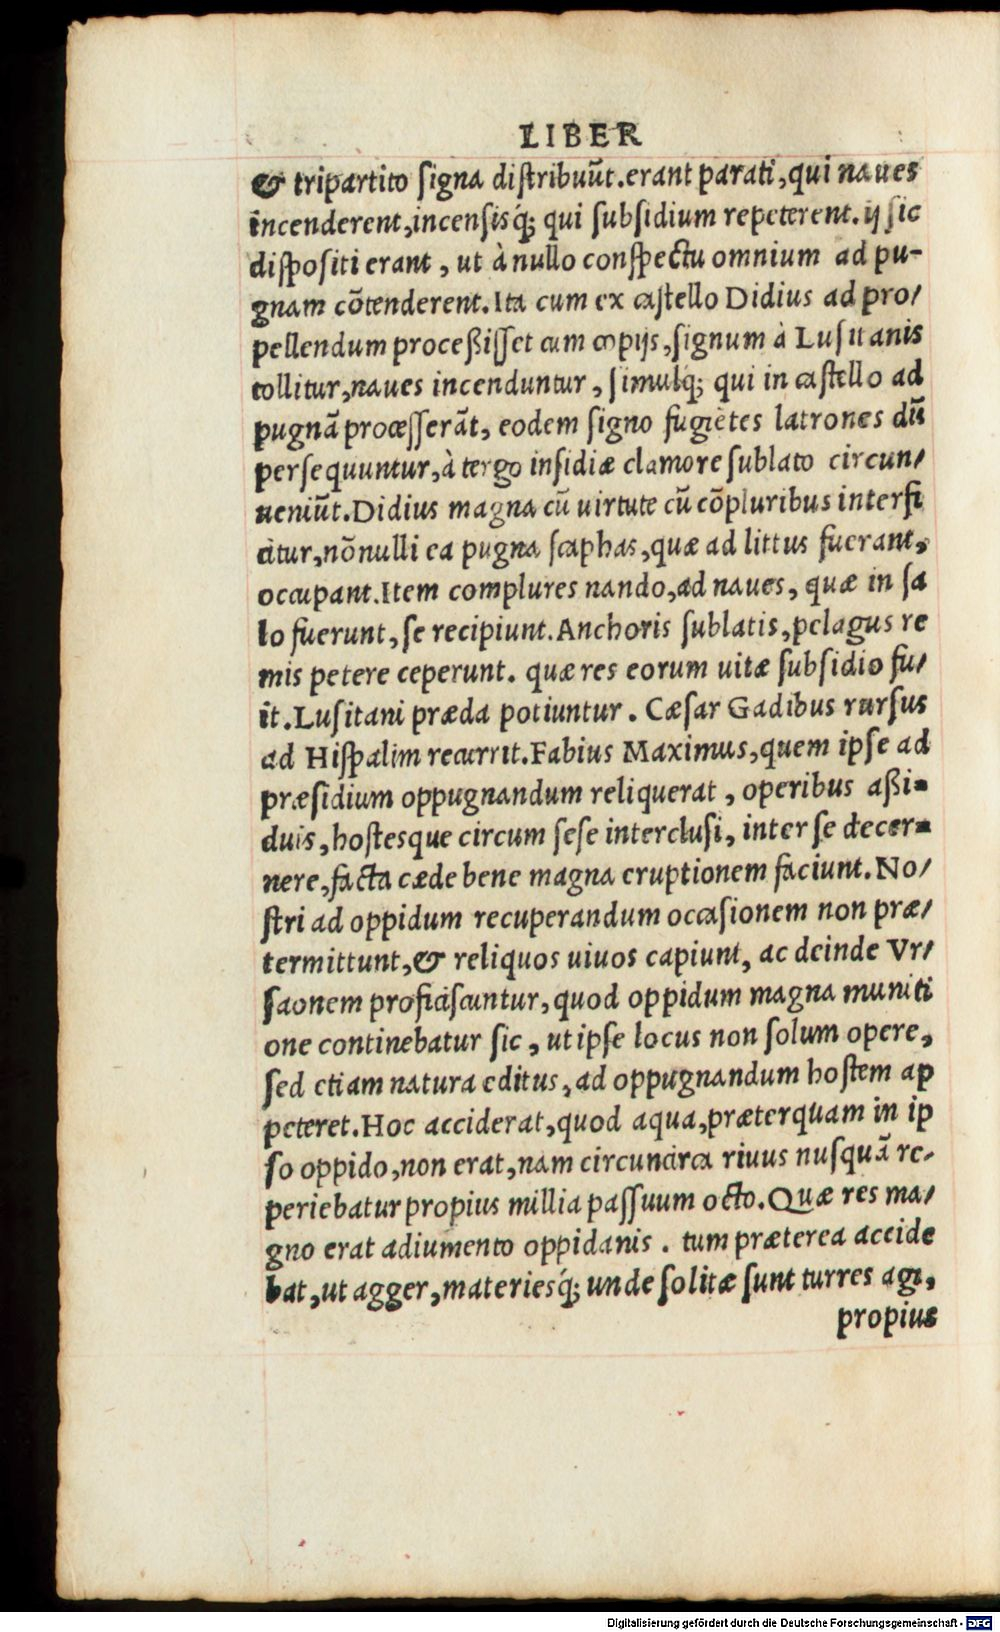 LIBER
& tripartito signa distribuũt.erant parati,qui naues
incenderent,incensisq́; qui subsidium repeterent.ij sic
dispositi erant, ut à nullo conspectu omnium ad pu-
gnam cõtenderent.Ita cum ex castello Didius ad pro/
pellendum proceßisset cum copijs,signum à Lusitanis
tollitur,naues incenduntur, simulq́; qui in castello ad
pugnã processerãt, eodem signo fugiẽtes latrones dũ
persequuntur,à tergo insidiæ clamore sublato circun/
ueniũt.Didius magna cũ uirtute cũ cõpluribus interfi
citur,nõnulli ea pugna scaphas,quæ ad littus fuerant,
occupant.Item complures nando,ad naues, quæ in sa
lo fuerunt,se recipiunt.Anchoris sublatis,pelagus re
mis petere ceperunt. quæ res eorum uitæ subsidio fu/
it.Lusitani præda potiuntur. Cæsar Gadibus rursus
ad Hispalim recurrit.Fabius Maximus,quem ipse ad
præsidium oppugnandum reliquerat, operibus aßi-
duis,hostesque circum sese interclusi, inter se decer-
nere,facta cæde bene magna eruptionem faciunt.No/
stri ad oppidum recuperandum occasionem non præ/
termittunt,& reliquos uiuos capiunt, ac deinde Vr/
saonem proficiscuntur,quod oppidum magna muniti
one continebatur sic, ut ipse locus non solum opere,
sed etiam natura editus,ad oppugnandum hostem ap
peteret.Hoc acciderat,quod aqua,præterquam in ip
so oppido,non erat,nam circuncirca riuus nusquã re-
periebatur propius millia passuum octo.Quæ res ma/
gno erat adiumento oppidanis. tum præterea accide
bat,ut agger,materiesq́; unde solitæ sunt turres agi,
propius
Digitalisierung gefördert durch die Deutsche Forschungsgemeinschaft - DFG